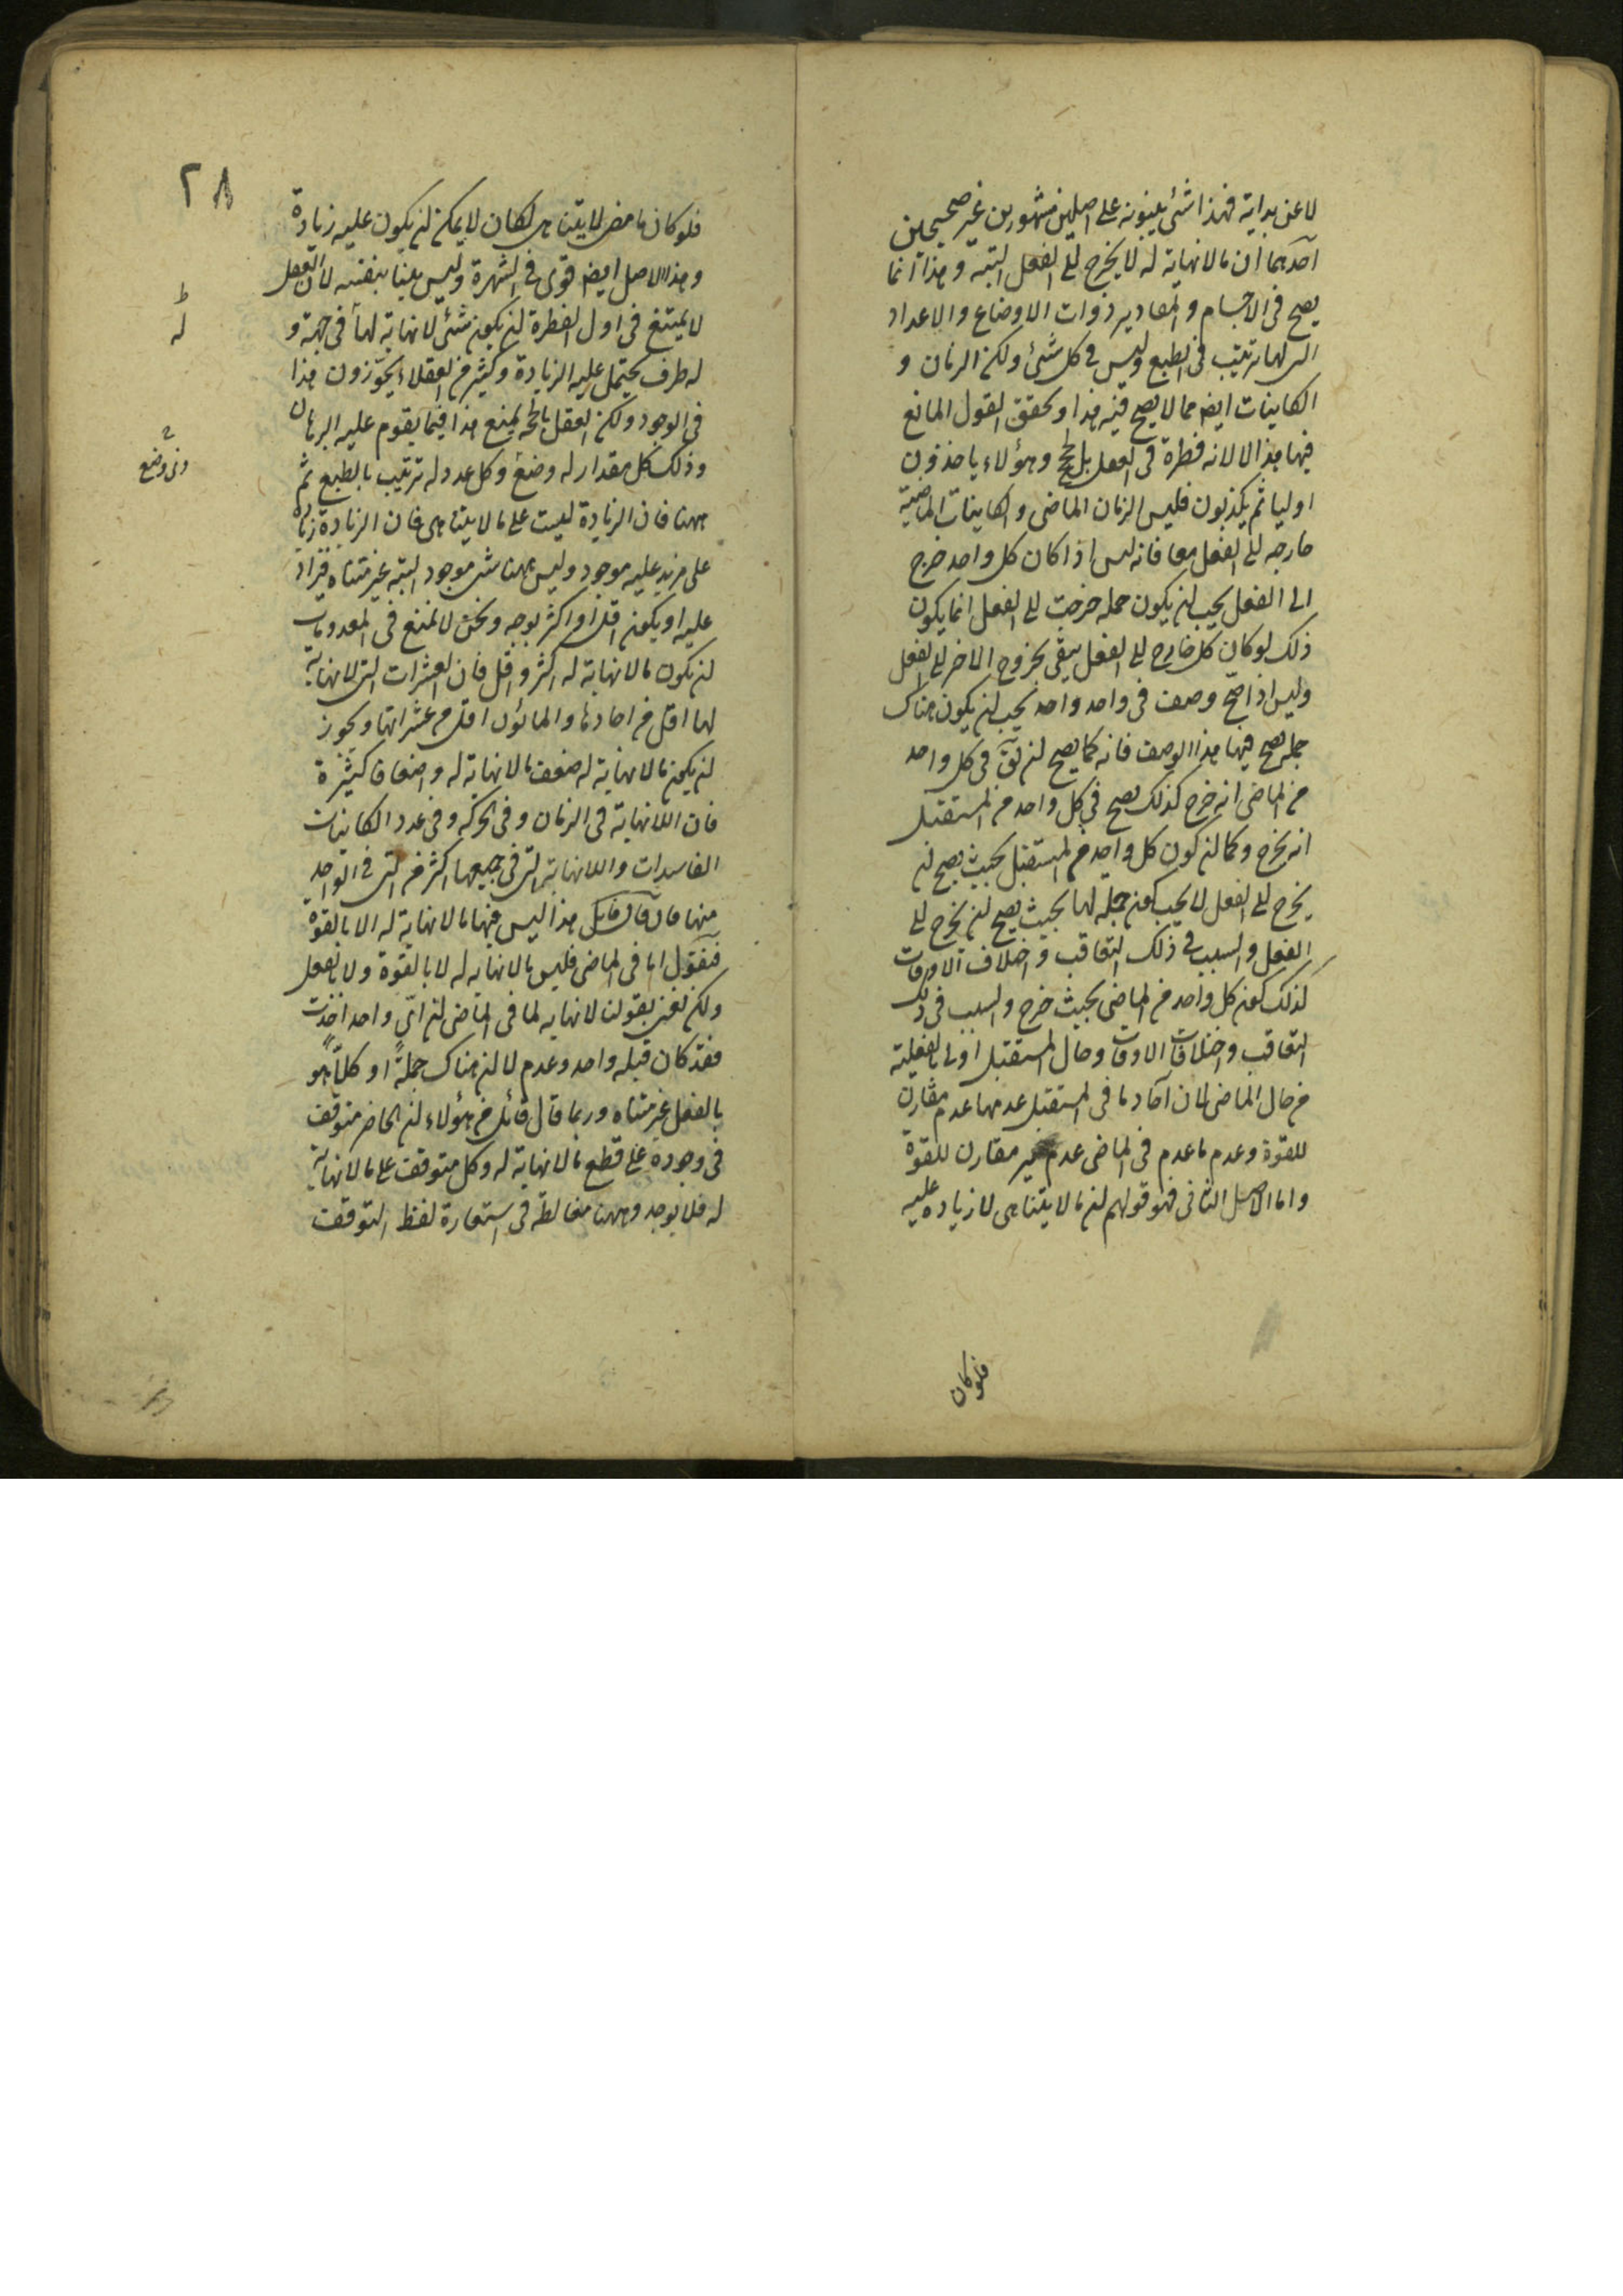 لا عن بداية فهذا شئ يبنونه على اصلين مشهورين غير صحيحين
احدهما ان ما لا نهاية له لا يخرج الى الفعل البتة و هذا انما
يصح فى الاجسام و المقادير ذوات الاوضاع و الاعداد
التى لها ترتيب فى الطبع وليس فى كل شئ ولكن الزمان و
الكاينات ايضا مما لا يصح فيه هذا و تحقق القول المانع
فيها هذا لا لانه فطرة فى العقل بل لحجج و هؤلاء ياخذون
اوليا ثم يكذبون فليس الزمان الماضى و الكاينات الماضية
خارجه الى الفعل معا فانه ليس اذا كان كل واحد خرج
الى الفعل يجب ان يكون جمله خرجت الى الفعل انما يكون
ذلك لو كان كل خارج الى الفعل يبقى بخروج الاخر الى الفعل
وليس اذا صح وصف فى واحد واحد يجب ان يكون هناك
جملة يصح فيها هذا الوصف فانه كما يصح ان يق فى كل واحد
من الماضى انه خرج كذلك يصح فى كل واحد من المستقبل
انه يخرج وكما ان كون كل واحد من المستقبل بحيث يصح ان
يخرج الى الفعل لا يجب كون جملة لها بحيث يصح ان يخرج الى
الفعل و السبب فى ذلك التعاقب و اختلاف الاوقات
كذلك كون كل واحد من الماضى بحيث خرج و السبب فى ذلك
التعاقب و اختلافات الاوقات و حال المستقبل اولى بالفعلية
من حال الماضى لان آحاد ما فى المستقبل عدمها عدم مقارن
للقوة و عدم ما عدم فى الماضى عدم غير مقارن للقوة
و اما الاصل الثانى فهو قولهم ان ما لا يتناهى لا زيادة عليه
فلو كان
٢٨
فلو كان ما مضى لا يتناهى لكان لا يمكن ان يكون عليه زيادة
و هذا الاصل ايضا قوى فى الشهرة وليس بينا بنفسه لان العقل
لا يمتنع فى اول الفطرة ان يكون شئ لا نهاية لها فى جهة و
له طرف يحتمل عليه الزيادة و كثير من العقلاء يجوزون هذا
فى الوجود ولكن العقل بالحجة يمنع هذا فيما يقوم عليه البرهان
و ذلك كل مقدار له وضع و كل عدد له ترتيب بالطبع ثم
ههنا فان الزيادة ليست على ما لا يتناهى فان الزيادة زيادة
على مزيد عليه موجود وليس ههنا شئ موجود البتة غير متناه فيزاد
عليه او يكون اقل او اكثر بوجه و نحن لا نمنع فى المعدومات
ان يكون ما لا نهاية له اكثر و اقل فان العشرات التى لا نهاية
لها اقل من احادها و المائون اقل من عشراتها و يجوز
ان يكون ما لا نهاية له ضعف ما لا نهاية له و اضعافا كثيرة
فان اللانهاية فى الزمان و فى الحركة و فى عدد الكاينات
الفاسدات و اللانهاية التى فى جميعها اكثر من التى فى الواحد
منها فان قال قايل هذا ليس فيها ما لا نهاية له الا بالقوة
فنقول اما فى الماضى فليس ما لا نهاية له لا بالقوة ولا بالفعل
ولكن نعنى بقولنا لا نهاية لما فى الماضى ان اى واحد اخذت
فقد كان قبله واحد و عدم لا ان هناك جملةً او كلاً هو
بالفعل غير متناه و ربما قال قائل من هؤلاء ان الحاضر متوقف
فى وجوده على قطع ما لا نهاية له و كل متوقف على ما لا نهاية
له فلا يوجد و ههنا مغالطة فى استعارة لفظ التوقف
ط
له
ذى وضع